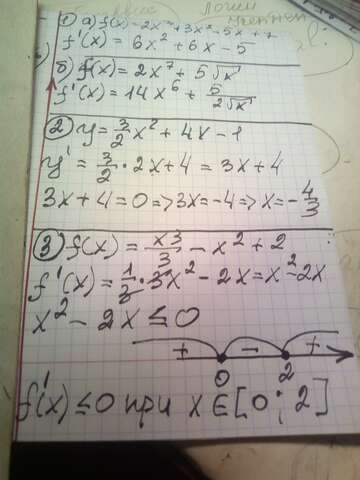 1) а) f(x) = 2x³ + 3x² - 5x + 7
f'(x) = 6x² + 6x - 5
б) f(x) = 2x⁷ + 5√x
f'(x) = 14x⁶ + 5/(2√x)
2) y = 3/2 x² + 4x - 1
y' = 3/2 · 2x + 4 = 3x + 4
3x + 4 = 0 => 3x = -4 => x = -4/3
3) f(x) = x3/3 - x² + 2
f'(x) = 1/3 · 3x² - 2x = x² - 2x
x² - 2x ≤ 0
+ - +
0 2
f'(x) ≤ 0 при x ∈ [0; 2]